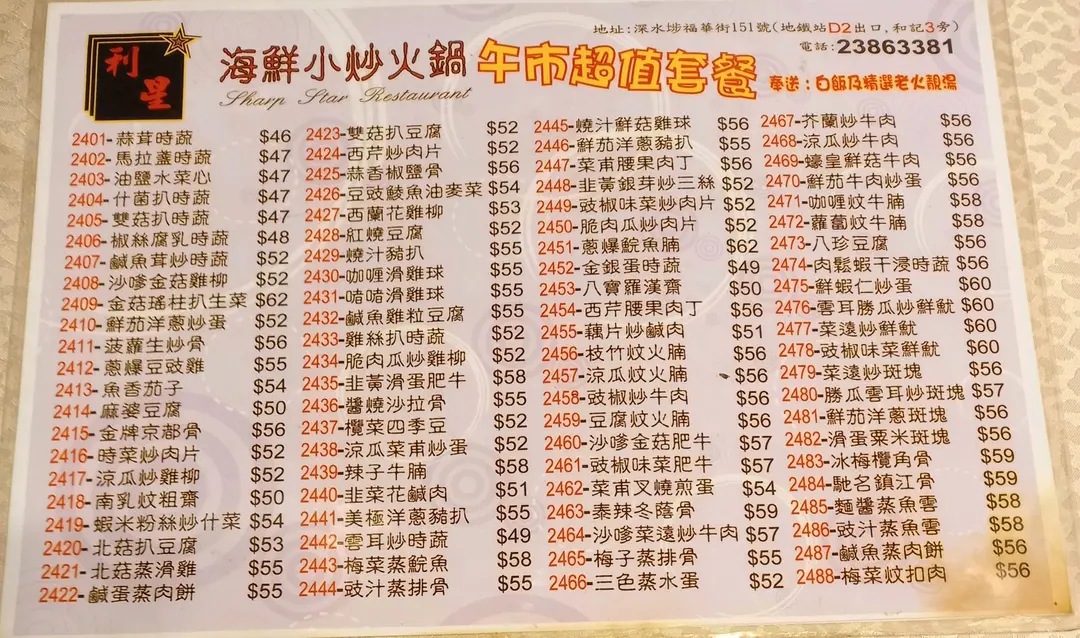 利星
地址:深水埗福華街151號(地鐵站D2出口,和記3旁)
電話:23863381
海鮮小炒火鍋 午市超值套餐
Sharp Star Restaurant
奉送:白飯及精選老火靚湯
2401-蒜茸時蔬 $46
2402-馬拉盞時蔬 $47
2403-油鹽水菜心 $47
2404-什菌扒時蔬 $47
2405-雙菇扒時蔬 $47
2406-椒絲腐乳時蔬 $48
2407-鹹魚茸炒時蔬 $52
2408-沙嗲金菇雞柳 $52
2409-金菇瑤柱扒生菜 $62
2410-鮮茄洋蔥炒蛋 $52
2411-菠蘿生炒骨 $56
2412-蔥爆豆豉雞 $55
2413-魚香茄子 $54
2414-麻婆豆腐 $50
2415-金牌京都骨 $56
2416-時菜炒肉片 $52
2417-涼瓜炒雞柳 $52
2418-南乳炆粗齋 $50
2419-蝦米粉絲炒什菜 $54
2420-北菇扒豆腐 $53
2421-北菇蒸滑雞 $55
2422-鹹蛋蒸肉餅 $55
2423-雙菇扒豆腐 $52
2424-西芹炒肉片 $52
2425-蒜香椒鹽骨 $56
2426-豆豉鯪魚油麥菜 $54
2427-西蘭花雞柳 $53
2428-紅燒豆腐 $52
2429-燒汁豬扒 $55
2430-咖喱滑雞球 $55
2431-啫啫滑雞球 $55
2432-鹹魚雞粒豆腐 $55
2433-雞絲扒時蔬 $52
2434-脆肉瓜炒雞柳 $52
2435-韭黃滑蛋肥牛 $58
2436-醬燒沙拉骨 $55
2437-欖菜四季豆 $52
2438-涼瓜菜甫炒蛋 $52
2439-辣子牛腩 $58
2440-韭菜花鹹肉 $51
2441-美極洋蔥豬扒 $55
2442-雲耳炒時蔬 $49
2443-梅菜蒸鯇魚 $58
2444-豉汁蒸排骨 $55
2445-燒汁鮮菇雞球 $56
2446-鮮茄洋蔥豬扒 $55
2447-菜甫腰果肉丁 $56
2448-韭黃銀芽炒三絲 $52
2449-豉椒味菜炒肉片 $52
2450-脆肉瓜炒肉片 $52
2451-蔥爆鯇魚腩 $62
2452-金銀蛋時蔬 $49
2453-八寶羅漢齋 $50
2454-西芹腰果肉丁 $56
2455-藕片炒鹹肉 $51
2456-枝竹炆火腩 $56
2457-涼瓜炆火腩 $56
2458-豉椒炒牛肉 $56
2459-豆腐炆火腩 $56
2460-沙嗲金菇肥牛 $57
2461-豉椒味菜肥牛 $57
2462-菜甫叉燒煎蛋 $54
2463-泰辣冬蔭骨 $59
2464-沙嗲菜遠炒牛肉 $57
2465-梅子蒸排骨 $55
2466-三色蒸水蛋 $52
2467-芥蘭炒牛肉 $56
2468-涼瓜炒牛肉 $56
2469-蠔皇鮮菇牛肉 $56
2470-鮮茄牛肉炒蛋 $56
2471-咖喱炆牛腩 $58
2472-蘿蔔炆牛腩 $58
2473-八珍豆腐 $56
2474-肉鬆蝦干浸時蔬 $56
2475-鮮蝦仁炒蛋 $60
2476-雲耳勝瓜炒鮮魷 $60
2477-菜遠炒鮮魷 $60
2478-豉椒味菜鮮魷 $60
2479-菜遠炒斑塊 $56
2480-勝瓜雲耳炒斑塊 $57
2481-鮮茄洋蔥斑塊 $56
2482-滑蛋粟米斑塊 $56
2483-冰梅欖角骨 $59
2484-馳名鎮江骨 $59
2485-麵醬蒸魚雲 $58
2486-豉汁蒸魚雲 $58
2487-鹹魚蒸肉餅 $56
2488-梅菜炆扣肉 $56